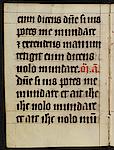 cum dicens dñe si uis
potes me mundare
⁊ extendens manum
tetigit eum dicens
uolo mundare. 
dñe si uis potes me
mundare et ait ihc
uolo mundare
et ait ihc uolo mũ